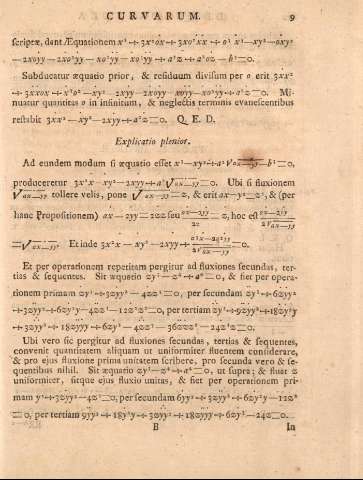 CURVARUM. 9
scriptæ, dant Æquationem x³ + 3x²ox + 3xo²xx + o³ x³ — xy² — oxy²
— 2xoyy — 2xo²yy — xo²yy — xo³yy + a²z + a²oz — b³ = 0.
Subducatur æquatio prior, & residuum divisum per o erit 3xx²
+ 3xxox + x³o² — xy² — 2xyy — 2xoyy — xoyy — xo²yy + a²z = 0. Mi-
nuatur quantitas o in infinitum, & neglectis terminis evanescentibus
restabit 3xx² — xy² — 2xyy + a²z = 0. Q. E. D.
Explicatio plenior.
Ad eundem modum si æquatio esset x³ — xy² + a² √ax—yy — b³ = 0,
produceretur 3x²x — xy² — 2xyy + a² √ax—yy = 0. Ubi si fluxionem
√ax—yy tollere velis, pone √ax—yy = z, & erit ax — y² = z², & (per
hanc Propositionem) ax — 2yy = 2zz seu ax—2yy / 2z = z, hoc est ax—2yy / 2√ax—yy
= √ax—yy. Et inde 3x²x — xy² — 2xyy + a³x—2a²yy / 2√ax—yy = 0.
Et per operationem repetitam pergitur ad fluxiones secundas, ter-
tias & sequentes. Sit æquatio zy³ — z⁴ + a⁴ = 0, & fiet per opera-
tionem primam zy³ + 3zyy² — 4zz³ = 0, per secundam zy³ + 6zyy²
+ 3zyy² + 6zy²y — 4zz³ — 12z²z² = 0, per tertiam zy³ + 9zyy² + 18zy²y
+ 3zyy² + 18zyyy + 6zy³ — 4zz³ — 36zzz² — 24z³z = 0.
Ubi vero sic pergitur ad fluxiones secundas, tertias & sequentes,
convenit quantitatem aliquam ut uniformiter fluentem considerare,
& pro ejus fluxione prima unitatem scribere, pro secunda vero & se-
quentibus nihil. Sit æquatio zy³ — z⁴ + a⁴ = 0, ut supra; & fluat z
uniformiter, sitque ejus fluxio unitas, & fiet per operationem pri-
mam y³ + 3zyy² — 4z³ = 0, per secundam 6yy² + 3zyy² + 6zy²y — 12z²
= 0, per tertiam 9yy² + 18y²y + 3zyy² + 18zyyy + 6zy³ — 24z = 0.
B In